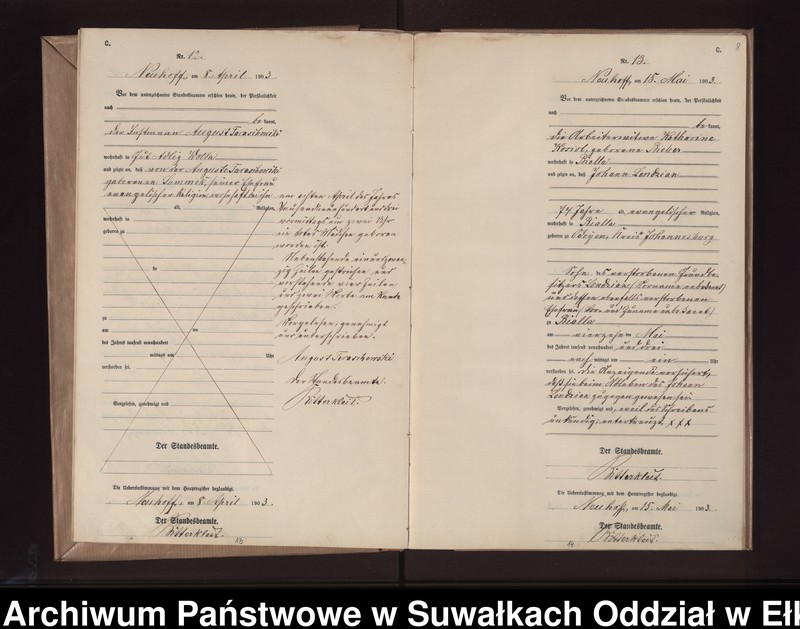 C.
Nr. 12.
Neuhoff, am 8. April 1903.
Vor dem unterzeichneten Standesbeamten erschien heute, der Persönlichkeit
nach
be kannt,
der Instmann August
wohnhaft in Gut Adlig Wolla
und zeigte an, daß von der Auguste
geborenen seiner Ehefrau
evangelischer Religion, wohnhaft bei ihm
alt, Religion,
wohnhaft in
geboren zu
zu
am
des Jahres tausend neunhundert
mittags um Uhr
verstorben sei.
Vorgelesen, genehmigt und
Der Standesbeamte.
Die Uebereinstimmung mit dem Hauptregister beglaubigt.
Neuhoff, am 8. April 1903.
Der Standesbeamte.
Ritterkleit.
am ersten April des Jahres
Neunhundert und drei
vormittags um zwei Uhr
ein totes Mädchen geboren
worden ist.
Nebenstehende
Zeilen gestrichen und
vorstehende vier Zeilen
und zwei Worte am Rande
geschrieben.
Vorgelesen, genehmigt
und unterschrieben.
August
Der Standesbeamte.
Ritterkleit.
C.
8
Nr. 13.
Neuhoff, am 15. Mai 1903.
Vor dem unterzeichneten Standesbeamten erschien heute, der Persönlichkeit
nach
be kannt,
die Arbeiterwitwe Katharine
geborene
wohnhaft in Bialla
und zeigte an, daß Johann Lendzian
74 Jahre alt, evangelischer Religion,
wohnhaft in Bialla
geboren zu Kreis Johannesburg
Sohn des verstorbenen Grundbe-
sitzers Lendzian (Vorname unbekannt)
und dessen ebenfalls verstorbenen
Ehefrau (Vor und Zuname unbekannt)
zu Bialla
am vierzehn Mai
des Jahres tausend neunhundert und drei
nach mittags um ein Uhr
verstorben sei. Die Anzeigende versicherte,
daß sie beim Ableben des Johann
Lendzian zugegen gewesen sei.
Vorgelesen, genehmigt und, weil des Schreibens
unkundig, unterkreuzt. xxx
Der Standesbeamte.
Ritterkleit.
Die Uebereinstimmung mit dem Hauptregister beglaubigt.
Neuhoff, am 15. Mai 1903.
Der Standesbeamte.
Ritterkleit.
Archiwum Państwowe w Suwałkach Oddział w Ełk